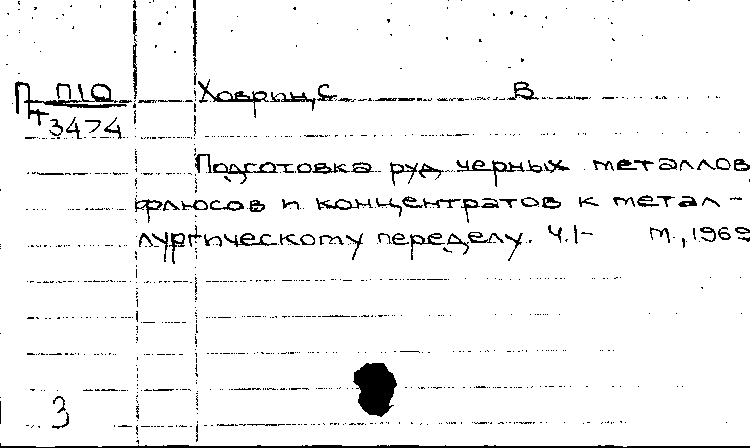 П П10 Ховрин, С В
т 3474
Подготовка руд черных металлов
флюсов и концентратов к метал-
лургическому переделу. Ч.1- М., 1969
3